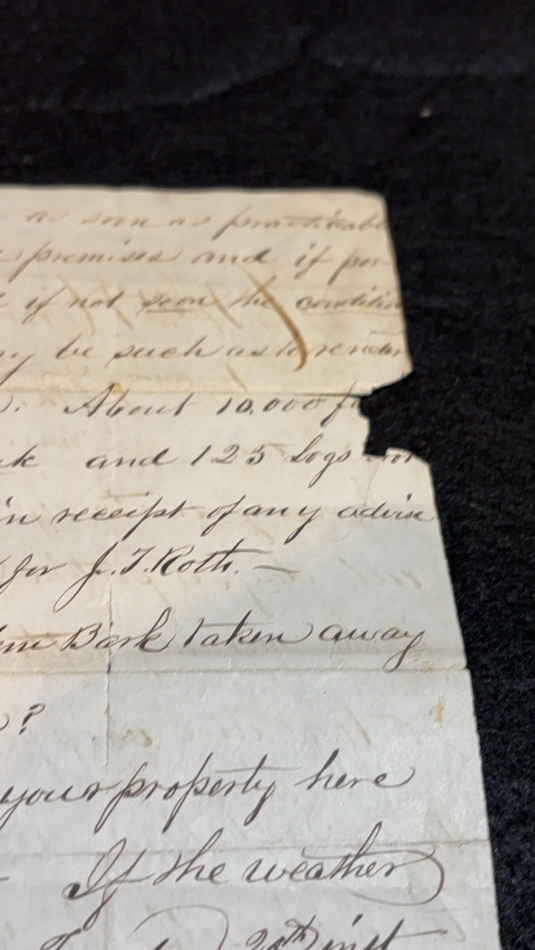 as soon as practicable
premises and if pos-
if not soon the condition
be such as to render
About 10,000 f
and 125 Logs
in receipt of any advise
for J. T. Roth. —
Bark taken away
?
your property here
If the weather
20th inst